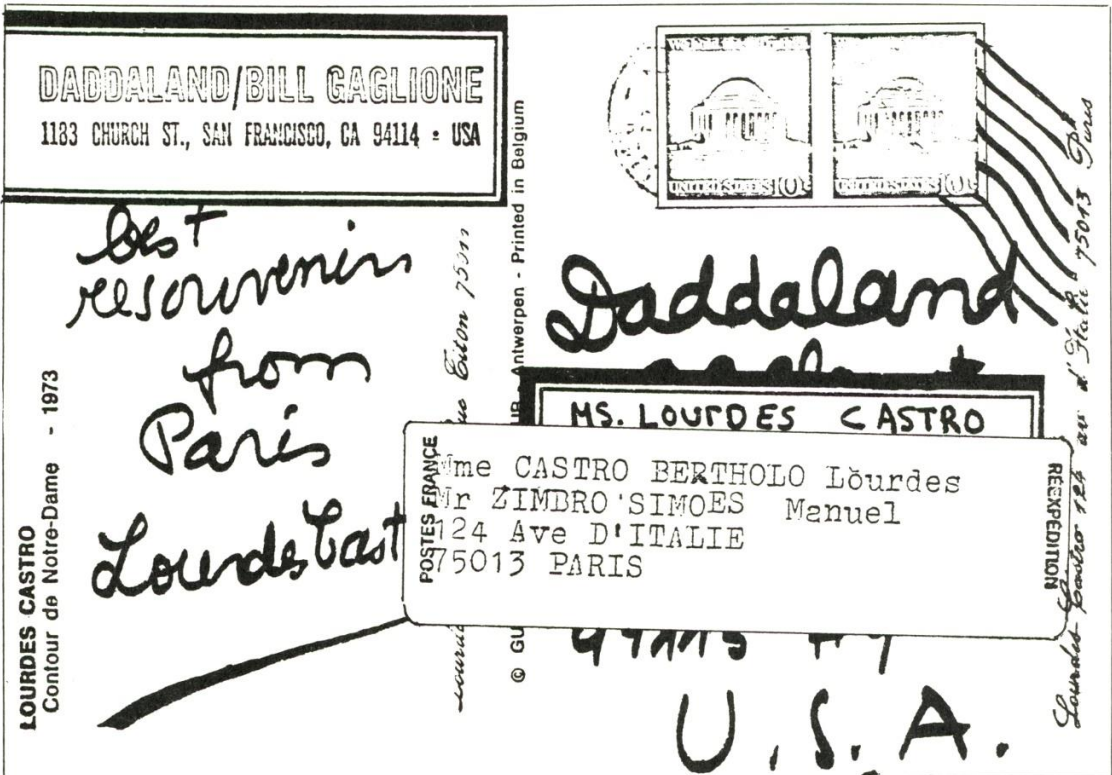 DADDALAND/BILL GAGLIONE
1183 CHURCH ST., SAN FRANCISCO, CA 94114 - USA
best
resouvenirs
from
Paris
Lourdes Cast
LOURDES CASTRO
Contour de Notre-Dame - 1973
Titon 750
© GU UR Antwerpen - Printed in Belgium
UNITED STATES 10
UNITED STATES 10
Daddaland
MS. LOURDES CASTRO
POSTES FRANCE
Mme CASTRO BERTHOLO Lourdes
Mr ZIMBRO SIMOES Manuel
124 Ave D'ITALIE
75013 PARIS
REEXPEDITION
U.S.A.
Lourdes Castro 124 av d'Italie 75013 Paris